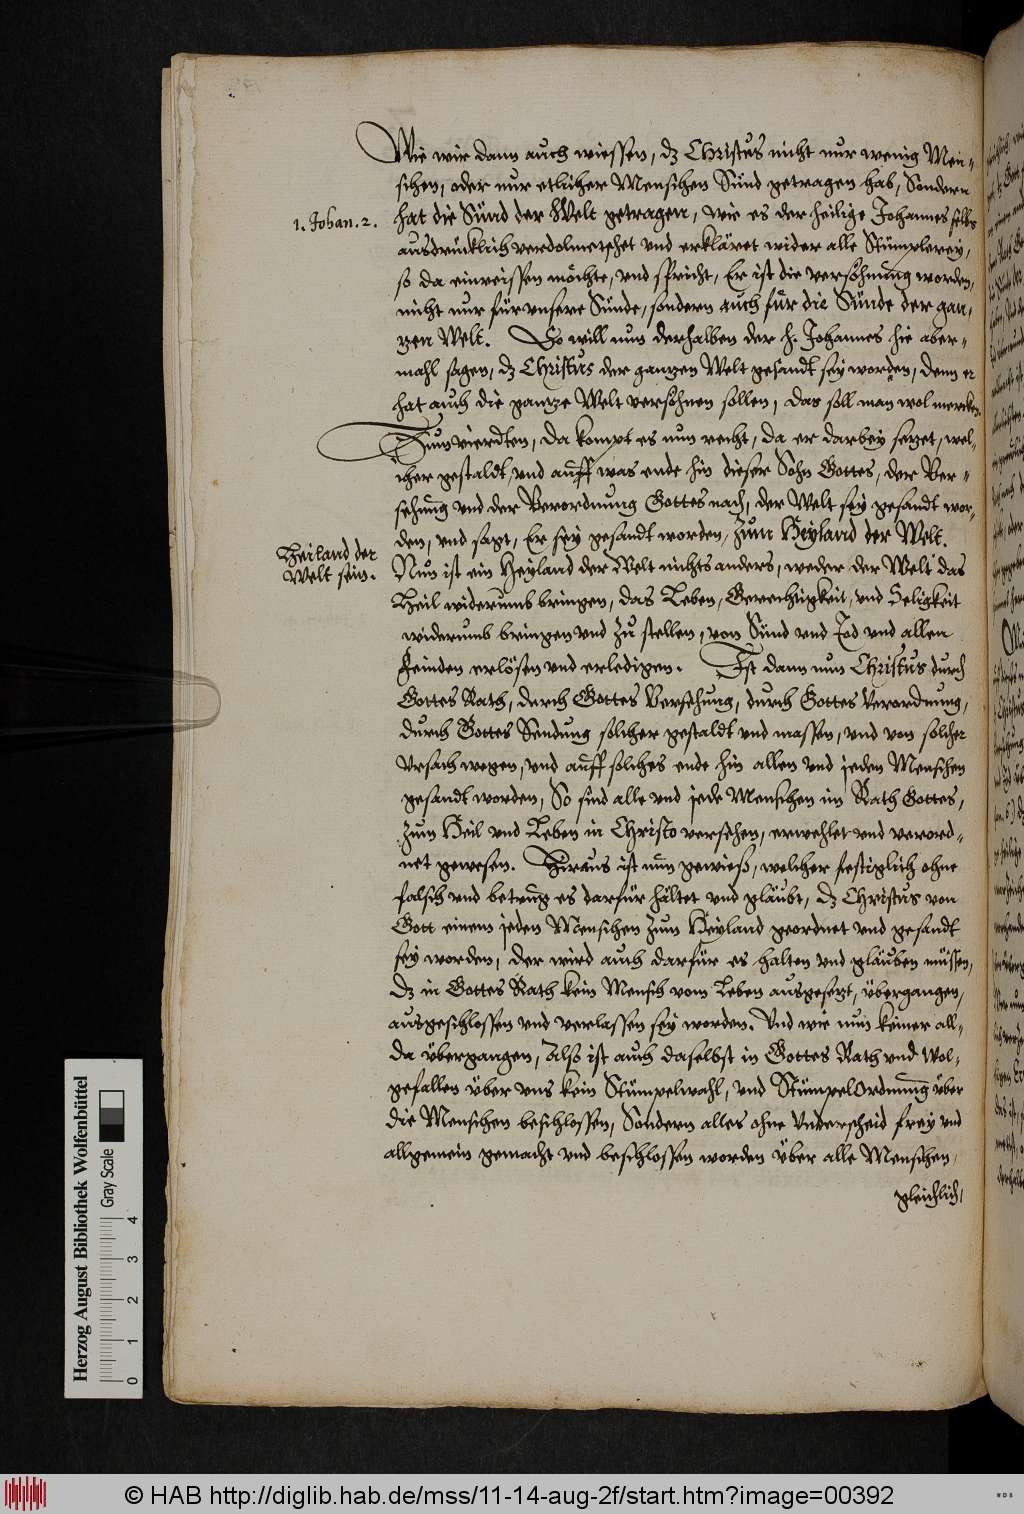 Wie wir dann auch wiessen, dz Christus nicht nur wenig Men-
schen, oder nur etlicher Menschen Sünd getragen hab, Sondern
1. Johan. 2.
hat die Sünd der Welt getragen, wie es der heilige Johannes selbs
ausdrücklich verdolmetschet vnd erkläret wider alle Stümplerey,
so da einreissen möchte, vnd spricht, Er ist die versöhnung worden,
nicht nur für vnsere Sünde, sondern auch für die Sünde der gan-
tzen Welt. So will nun derhalben der h. Johannes hie aber-
mahl sagen, dz Christus der gantzen Welt gesandt sey worden, denn er
hat auch die gantze Welt versöhnen sollen, das soll man wol mercken.
Zum vierdten, da kompt es nun recht, da er darbey setzet, wel-
icher gestaldt, vnd auff was ende hin dieser Sohn Gottes, der Ver-
sehung vnd der Verordnung Gottes nach, der Welt sey gesandt wor-
den, vnd sagt, Er sey gesandt worden, zum Heyland der Welt.
Heiland der
Welt sein.
Nun ist ein Heyland der Welt nichts anders, weder der Welt das
Heil widerumb bringen, das Leben, Gerechtigkeit, vnd Seligkeit
widerumb bringen vnd zu stellen, von Sünd vnd Tod vnd allen
Feinden erlösen vnd erledigen. Ist dann nun Christus durch
Gottes Rath, durch Gottes Versehung, durch Gottes Verordnung,
durch Gottes Sendung solcher gestaldt vnd massen, vnd von solcher
Vrsach wegen, vnd auff solches ende hin allen vnd jeden Menschen
gesandt worden, So sind alle vnd jede Menschen im Rath Gottes,
zum Heil vnd Leben in Christo versehen, erwehlet vnd verord-
net gewesen. Hieraus ist nun gewieß, welcher festiglich ohne
falsch vnd betrug es darfür hältet vnd gläubt, dz Christus von
Gott einem jeden Menschen zum Heyland geordnet vnd gesandt
sey worden, der wird auch darfür es halten vnd gläuben müssen,
dz in Gottes Rath kein Mensch vom Leben ausgesetzt, übergangen,
ausgeschlossen vnd verlassen sey worden. Vnd wie nun keiner all-
da übergangen, Also ist auch daselbst in Gottes Rath vnd Wol-
gefallen über vns kein Stümpelwahl, vnd Stümpelordnung über
die Menschen beschlossen, Sondern alles ohne Vnderscheid frey vnd
allgemein gemacht vnd beschlossen worden über alle Menschen,
gleichlich,
Herzog August Bibliothek Wolfenbüttel
Gray Scale
0 1 2 3 4
© HAB http://diglib.hab.de/mss/11-14-aug-2f/start.htm?image=00392